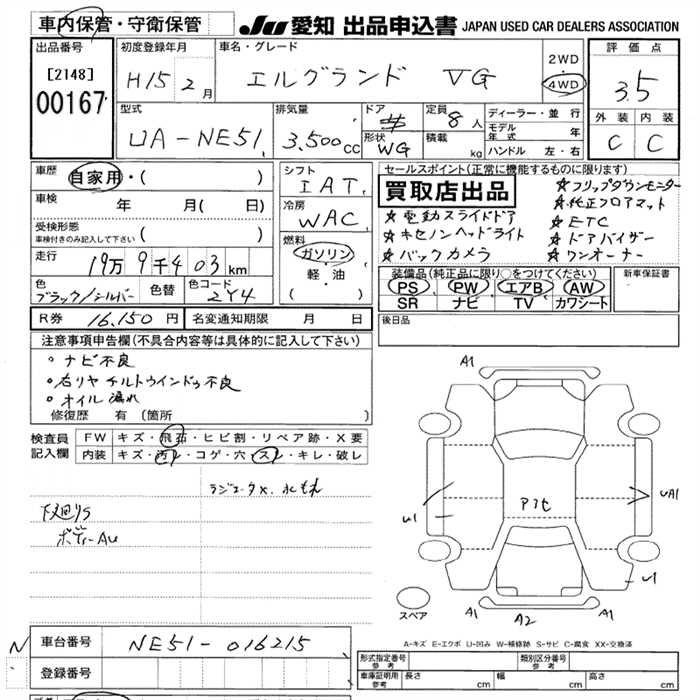 車内保管・守衛保管
JU 愛知 出品申込書 JAPAN USED CAR DEALERS ASSOCIATION
出品番号
[2148]
00167
初度登録年月
H15 2 月
車名・グレード
エルグランド VG
2WD
4WD
評価点
3.5
外装 内装
C C
型式
UA-NE51
排気量
3.500cc
ドア
形状
WG
定員
8人
積載
kg
ディーラー・並行
モデル年式 年
ハンドル 左・右
車歴
自家用・( )
車検
年 月( 日)
受検形態
車検付きのみ記入して下さい
( )
走行
19万9千403km
色
ブラック/シルバー
色替
色コード
2Y4
シフト
IAT
冷房
WAC
燃料
ガソリン
軽・油
( )
セールスポイント(正常に機能するものに限ります)
買取店出品
☆フリップダウンモニター
☆純正フロアマット
☆電動スライドドア
☆ETC
☆キセノンヘッドライト
☆ドアバイザー
☆バックカメラ
☆ワンオーナー
装備品(純正品に限り○をつけてください)
PS PW エアB AW
SR ナビ TV カワシート
新車保証書
R券 16.150円
名変通知期限 月 日
後日品
注意事項申告欄(不具合内容等は具体的に記入して下さい)
・ナビ不良
・右リヤチルトウインドゥ不良
・オイル漏れ
修復歴 有(箇所 )
検査員
記入欄
FW キズ・飛石・ヒビ割・リペア跡・X要
内装 キズ・汚レ・コゲ・穴・スレ・キレ・破レ
ラジエータX.水もれ
下廻りS
A1
A1
U1
UA1
U1
A1
A2
A1
スペア
A-キズ E-エクボ U-凹み W-補修跡 S-サビ C-腐食 XX-交換済
N
車台番号
NE51-016215
登録番号
形式指定番号
参考
類別区分番号
参考
車庫証明用
参考
長さ cm
幅 cm
高さ cm